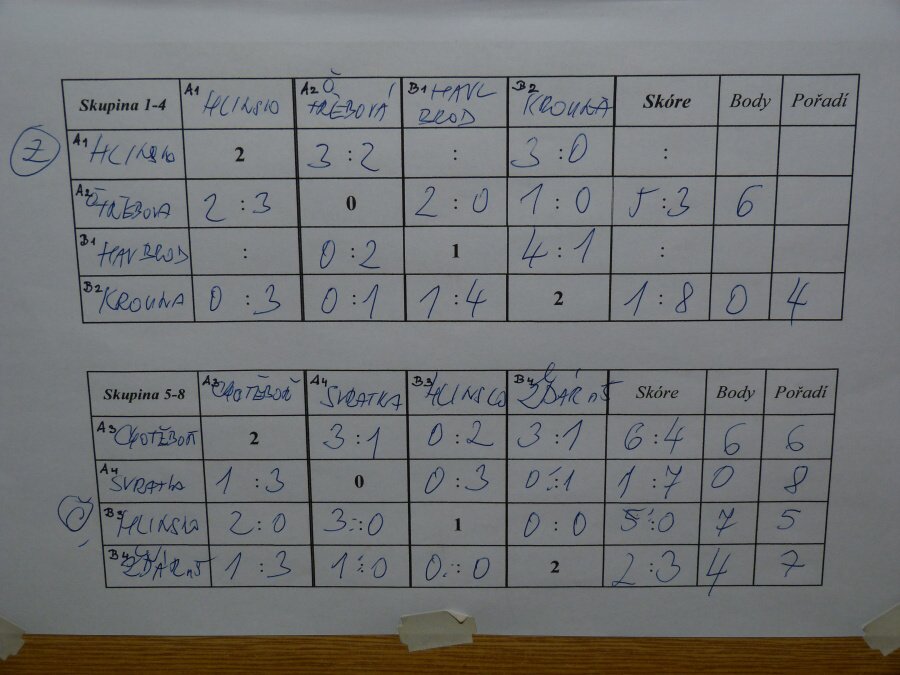 Skupina 1-4 A1 HLINSKO A2 Č. TŘEBOVÁ B1 HAVL BROD B2 KROUNA Skóre Body Pořadí
Ž A1 HLINSKO 2 3:2 : 3:0 :
A2 Č TŘEBOVA 2:3 0 2:0 1:0 5:3 6
B1 HAVBROD : 0:2 1 4:1 :
B2 KROUNA 0:3 0:1 1:4 2 1:8 0 4
Skupina 5-8 A3 CHOTĚBOŘ A4 SVRATKA B3 HLINSKO B4 ŽĎÁR nS Skóre Body Pořadí
A3 CHOTĚBOŘ 2 3:1 0:2 3:1 6:4 6 6
A4 SVRATKA 1:3 0 0:3 0:1 1:7 0 8
Č B3 HLINSKO 2:0 3:0 1 0:0 5:0 7 5
B4 ŽĎÁR nS 1:3 1:0 0:0 2 2:3 4 7